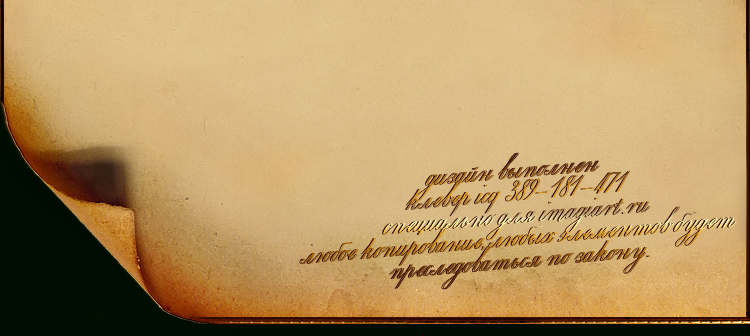 дизайн выполнен
клевер icq 389-181-471
специально для imagiart.ru
любое копирование, любых элементов будет
преследоваться по закону.